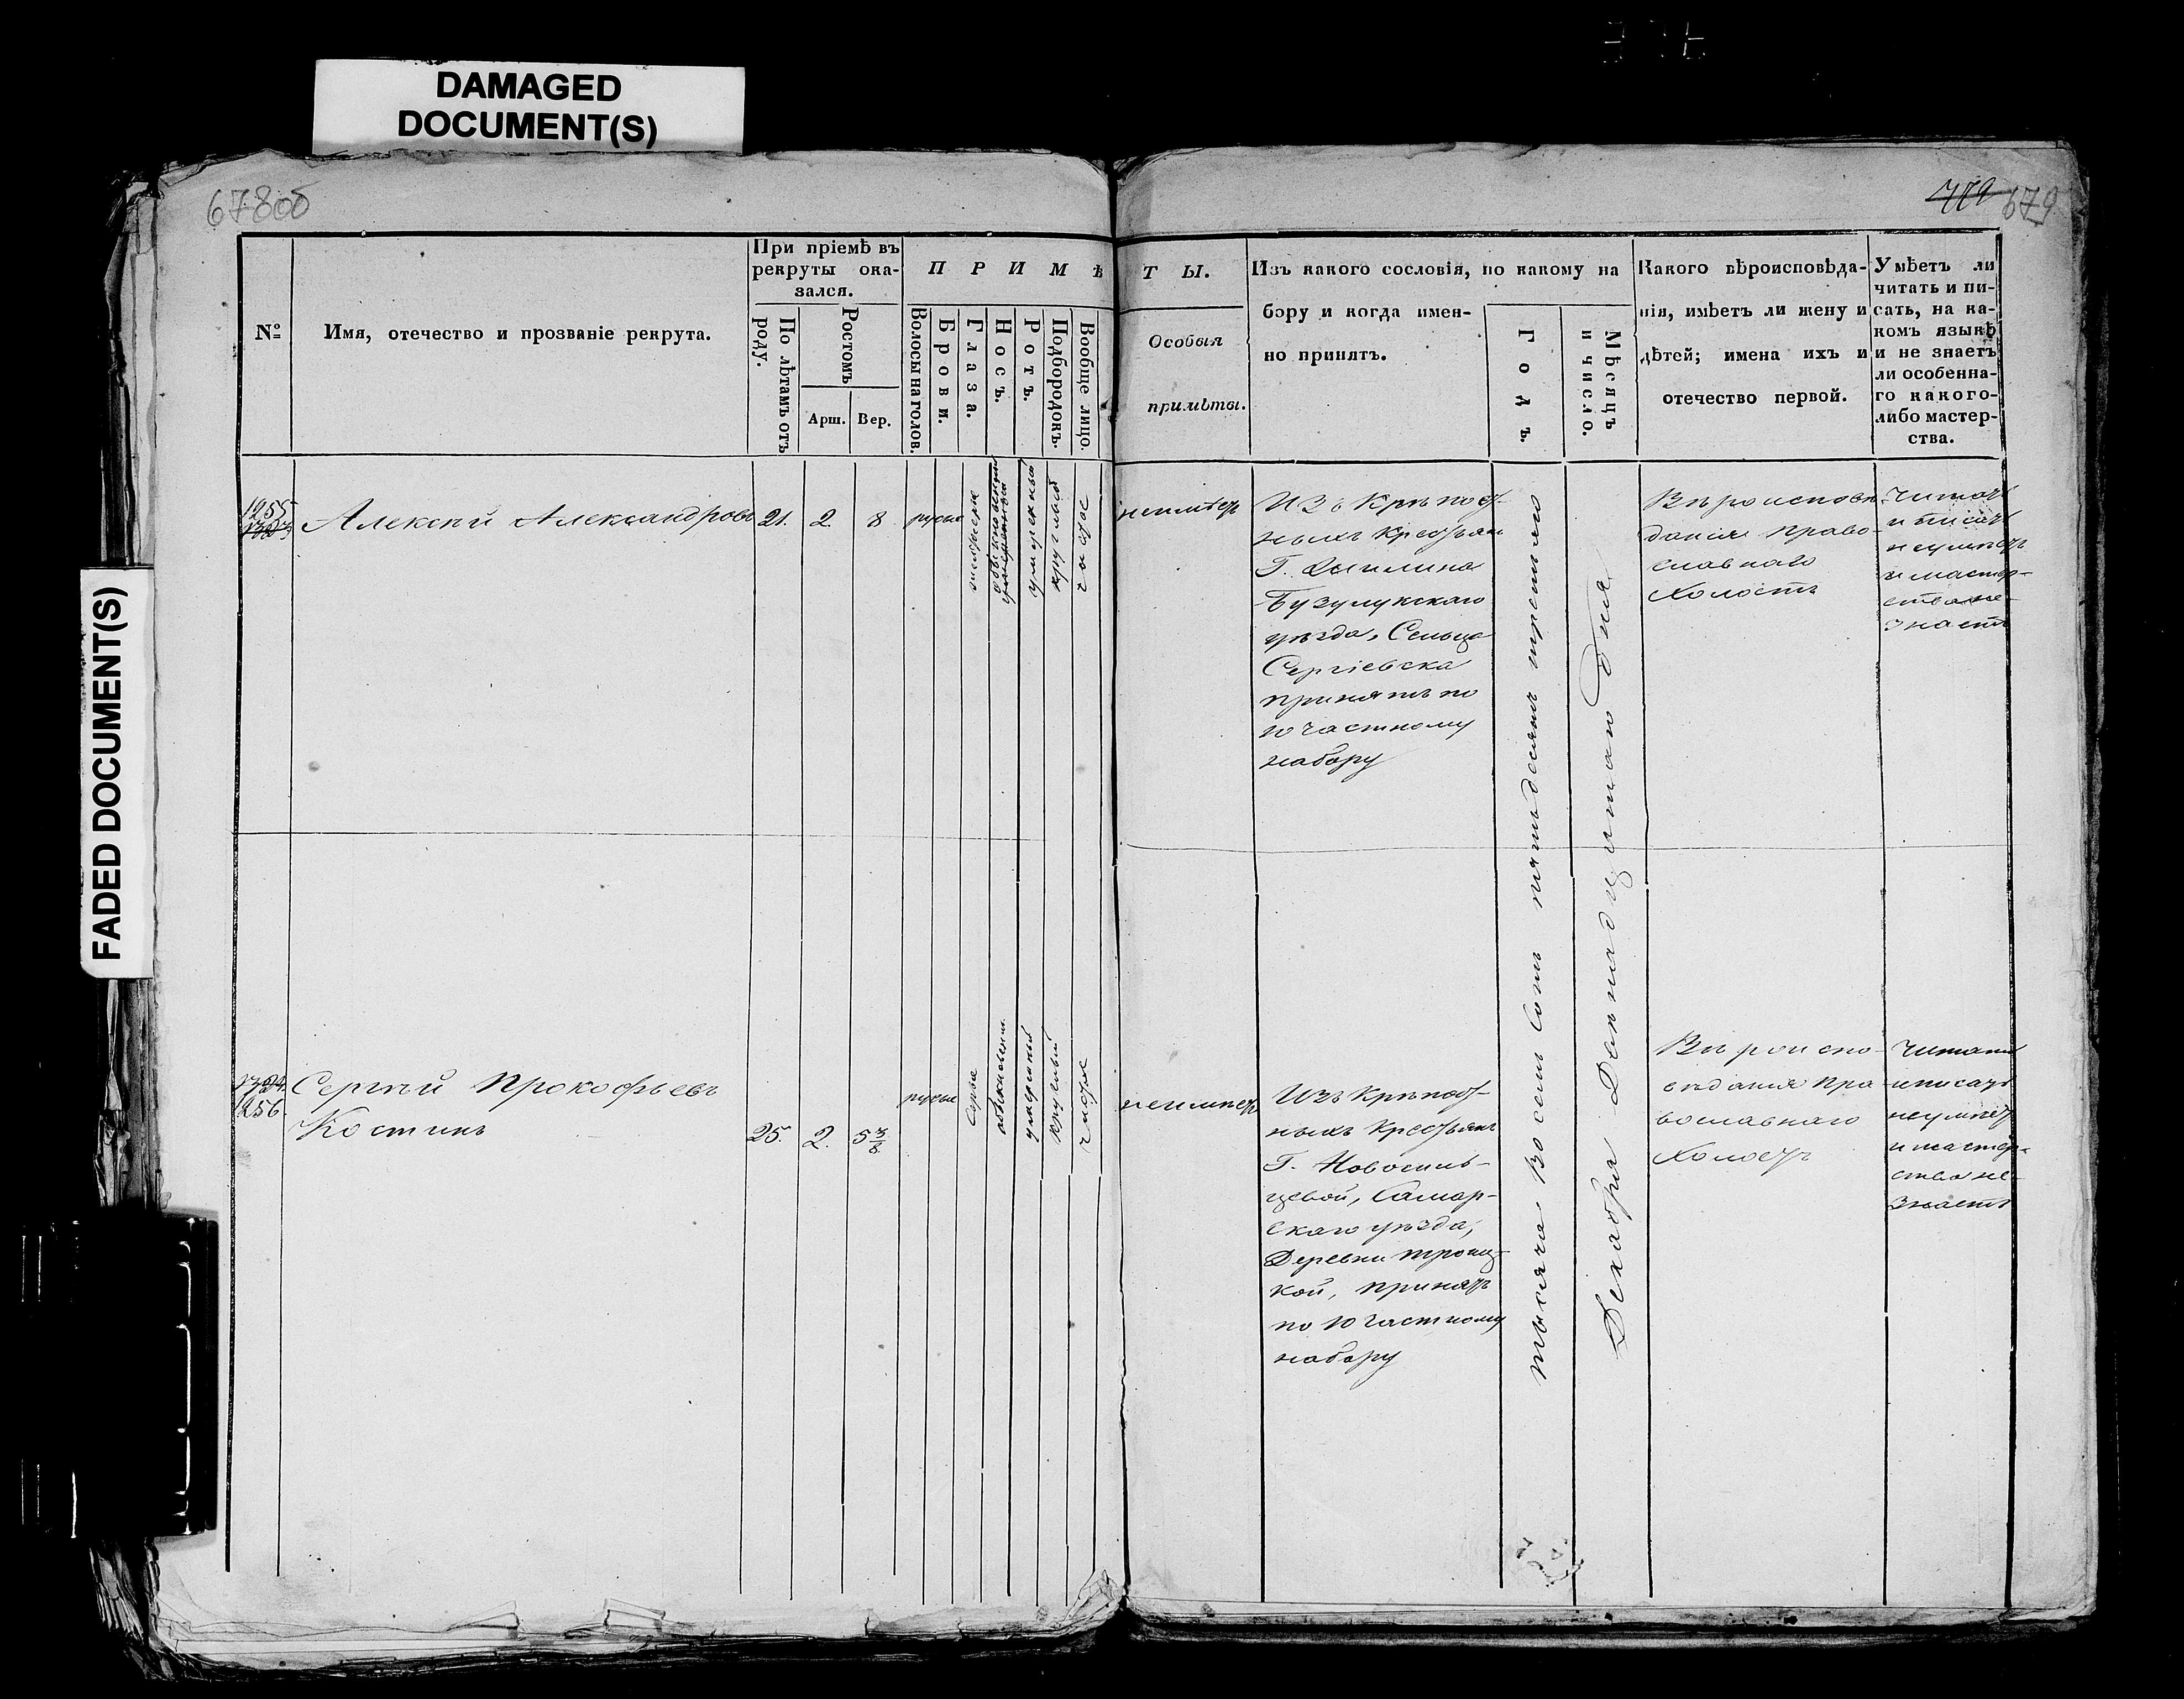 DAMAGED
DOCUMENT(S)
FADED DOCUMENT(S)
678об
679
№
Имя, отечество и прозваніе рекрута.
При пріемѣ въ
рекруты ока-
зался.
По лѣтамъ отъ
роду.
Ростомъ
Арш.
Вер.
ПРИМѢ
Волосы на голов.
Брови.
Глаза.
Носъ.
Ротъ.
Подбородокъ.
Вообще лицо.
ТЫ.
Особыя
примѣты.
Изъ какого сословія, по какому на
бору и когда имен-
но принятъ.
Годъ.
Мѣсяцъ
и число.
Какого вѣроисповѣда-
нія, имѣетъ ли жену и
дѣтей; имена ихъ и
отечество первой.
Умѣетъ ли
читать и пи-
сать, на ка-
комъ языкѣ
и не знаетъ
ли особенна-
го какого-
либо мастер-
ства.
1255
Алексѣй Александровъ
21.
2.
8
русые
обыкновенный
умѣренный
круглый
чистое
неимѣетъ
Изъ Крѣпост-
ныхъ Крестьянъ
Г.
Бузулукскаго
уѣзда, Сельца
Сергіевска
принятъ по
10 частному
набору
тысяча восемь сотъ пятьдесятъ третьяго
Декабря Двенадцатаго дня
Вѣроисповѣ
данія право-
славнаго
Холостъ
Читать
и писать
неумѣетъ
и мастер-
ства не-
знаетъ
1256
Сергѣй Прокофьевъ
Костинъ
25.
2.
5 3/8
русые
Серые
обыкновенн.
умѣренный
круглый
чистое
неимѣетъ
Изъ Крѣпост-
ныхъ Крестьянъ
Г. Новосиль-
цевой, Самар-
скаго уѣзда,
Деревни Троиц-
кой, принятъ
по 10 частному
набору
Вѣроиспо-
вѣданія пра
вославнаго
Холостъ
Читать
и писать
неумѣетъ
и мастер-
ства не-
знаетъ